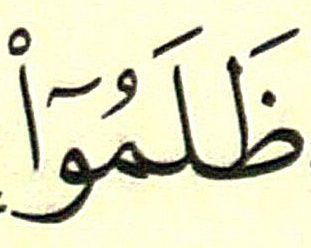 ظَلَمُوٓا۟